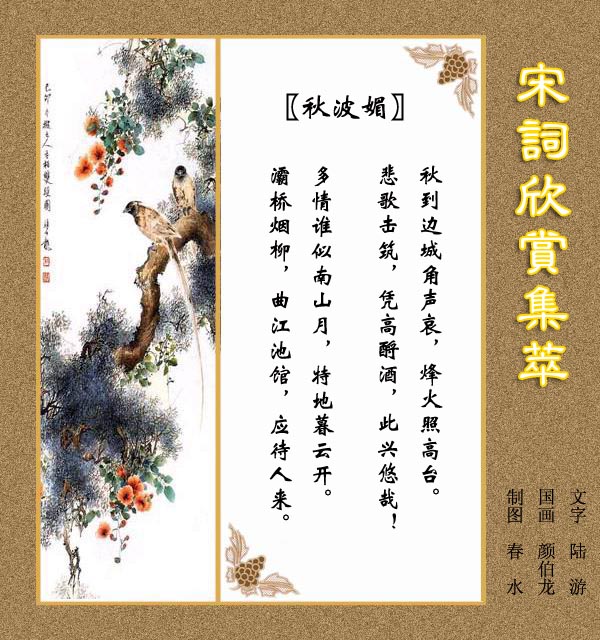 宋詞欣賞集萃
〖秋波媚〗
秋到边城角声哀，烽火照高台。
悲歌击筑，凭高酹酒，此兴悠哉！
多情谁似南山月，特地暮云开。
灞桥烟柳，曲江池馆，应待人来。
文字 陆游
国画 颜伯龙
制图 春水